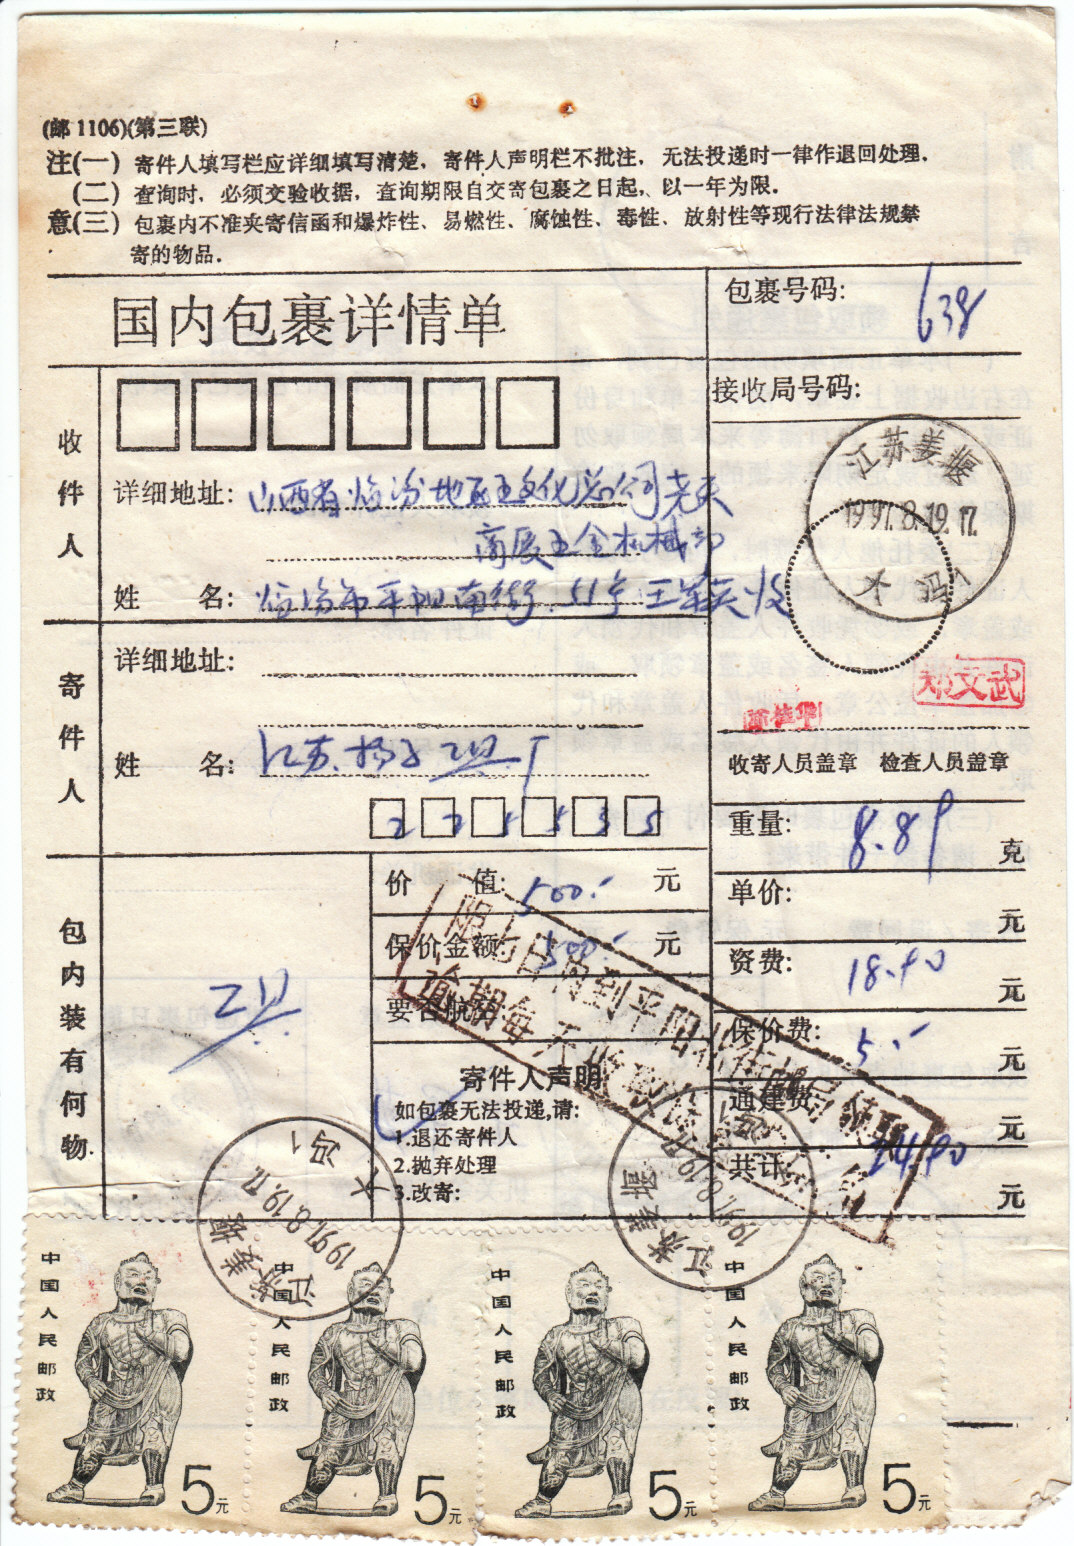 (邮 1106)(第三联)
注(一) 寄件人填写栏应详细填写清楚，寄件人声明栏不批注，无法投递时一律作退回处理．
(二) 查询时，必须交验收据，查询期限自交寄包裹之日起，以一年为限．
意(三) 包裹内不准夹寄信函和爆炸性、易燃性、腐蚀性、毒性、放射性等现行法律法规禁
寄的物品．
国内包裹详情单
包裹号码:
638
接收局号码:
收件人
详细地址: 山西省临汾地区五文化总公司
商展五金机械部
姓 名: 临汾市平阳南街 51号 王 英 收
江苏姜堰
1997.8.19.17
大 冯 1
寄件人
详细地址:
姓 名: 江苏 扬子工具厂
225535
郑文武
收寄人员盖章 检查人员盖章
重量: 克
单价: 元
资费: 18.40 元
保价费: 5.- 元
通建费: 元
共计: 24.40 元
包内装有何物
工具
价 值: 500.- 元
保价金额: 500.- 元
要否航空:
寄件人声明
如包裹无法投递,请:
1.退还寄件人
2.抛弃处理
3.改寄:
日内到平阳
逾期每天收
江苏姜堰
1997.8.19.17
大 冯 1
江苏姜堰
1997.8.19.17
中国人民邮政
5元
中国人民邮政
5元
中国人民邮政
5元
中国人民邮政
5元